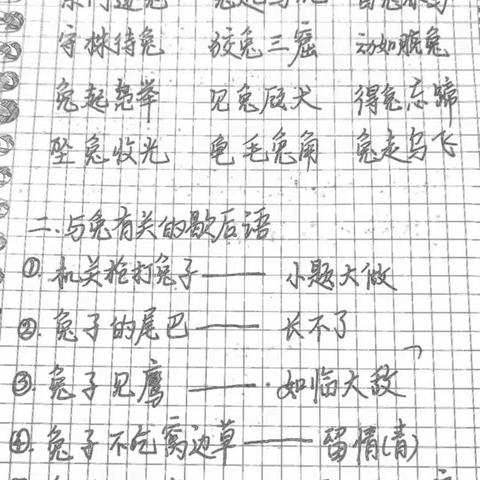 守株待兔 狡兔三窟 动如脱兔
兔起凫举 见兔顾犬 得兔忘蹄
坠兔收光 龟毛兔角 兔走乌飞
二、与兔有关的歇后语
①. 机关枪打兔子—— 小题大做
②. 兔子的尾巴—— 长不了
③. 兔子见鹰——如临大敌
④. 兔子不吃窝边草——留情(青)